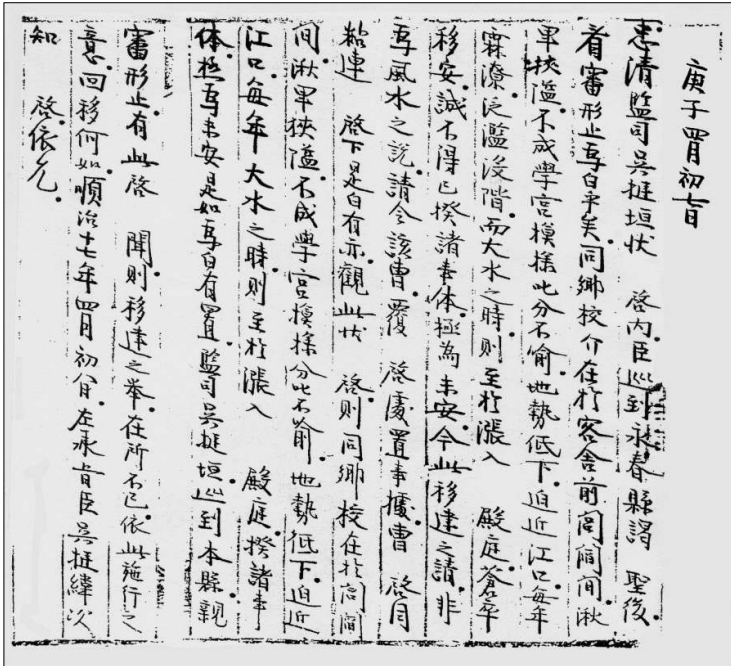 庚子四月初七日
忠清監司吳挺垣狀 啓內臣巡到永春縣謁 聖後
看審形止爲白乎矣同鄉校介在於客舍前閭閻間湫
卑狹隘不成學宮模樣叱分不喩地勢低下迫近江口每年
霖潦泛濫沒階而大水之時則至於漲入 殿庭蒼卒
移安誠不得已揆諸事体極爲未安今此移建之請非
爲風水之說請令該曹覆 啓處置事據曹 啓目
粘連 啓下是白有亦觀此狀 啓則同鄉校在於閭閻
间湫卑狹隘不成學宮模樣分叱不喩地勢低下迫近
江口每年大水之時則至於漲入 殿庭揆諸事
体極爲未安是如爲白有置監司吳挺垣巡到本縣親
審形止有此啓 聞則移建之举在所不已依此施行之
意回移何如順治十七年四月初 日左承旨臣吳挺緯次
知 啓依允